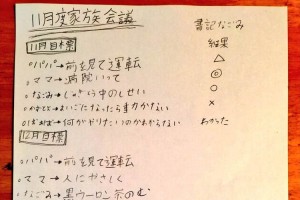 11月度家族会議 書記なごみ
11月目標 結果
○パパ→前を見て運転 △
○ママ→病院いって ◎
○なごみ→じゅぎょう中のしせい ○
→まいごになったらまわかない ×
○ばぁば→何がドリたいのかわからない わかった
12月目標
○パパ→前を見て運転
○ママ→人にやさしく
○なごみ→黒ウーロン茶のむ